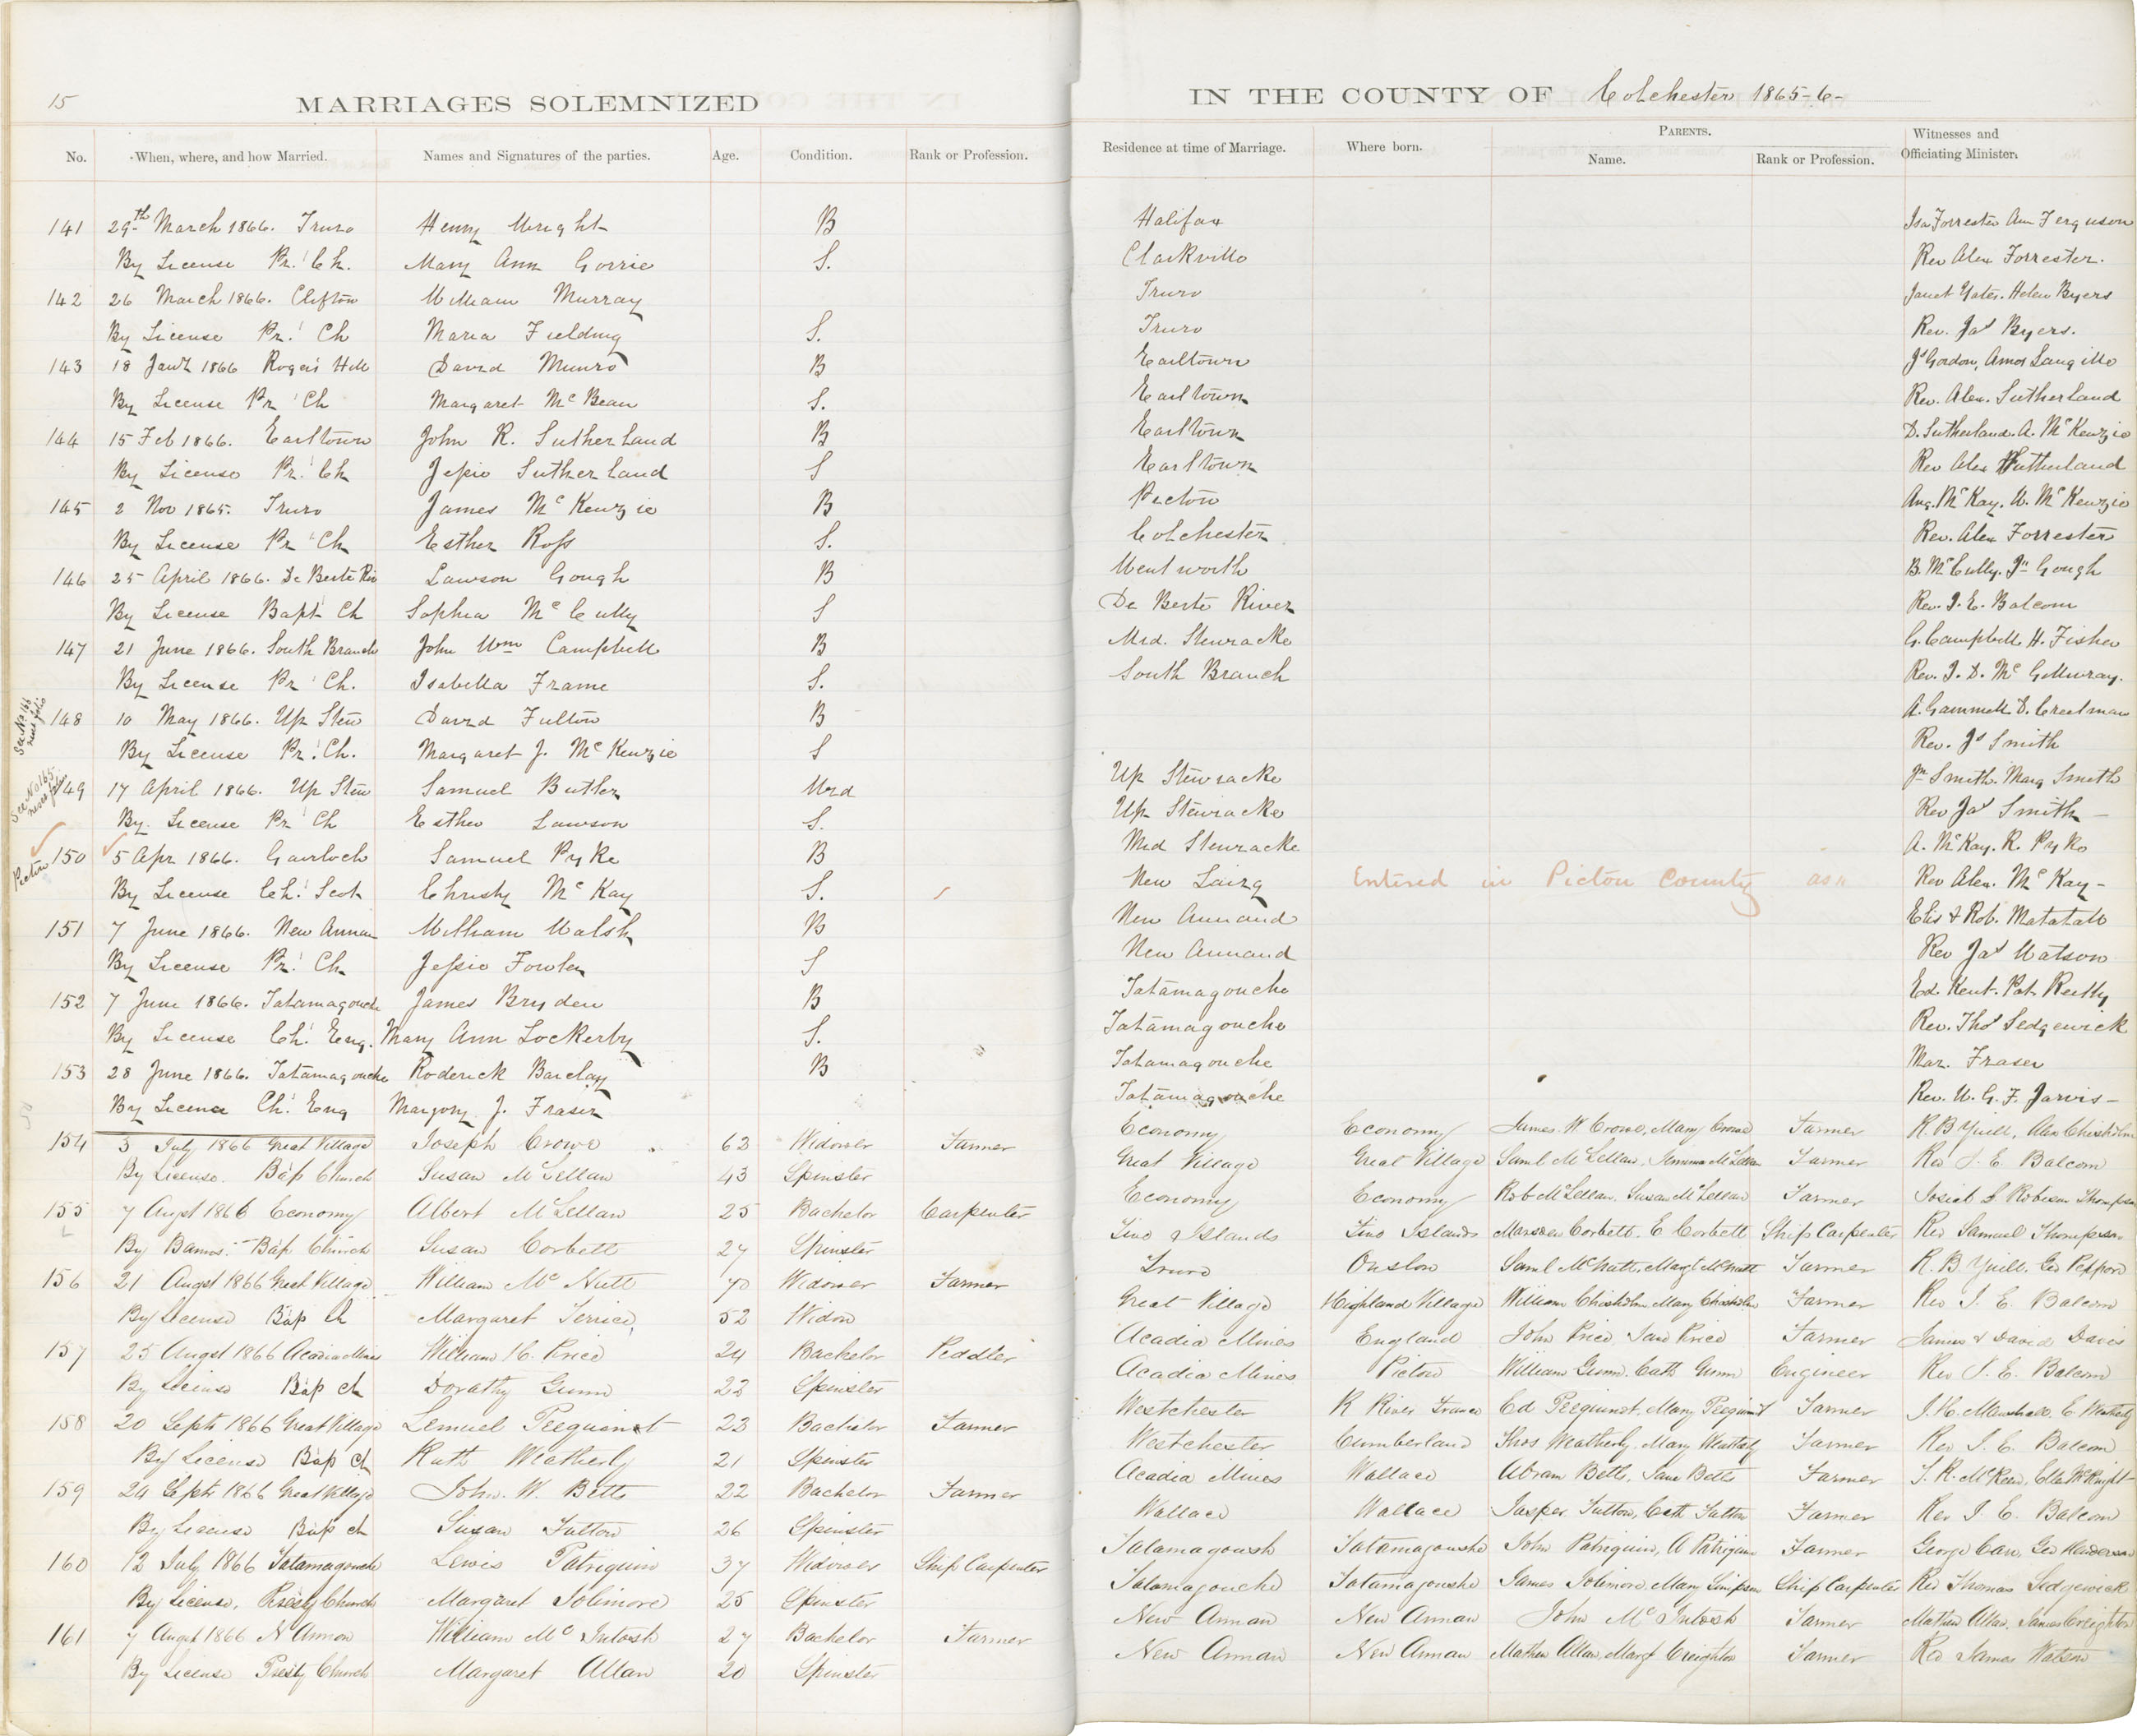 15
MARRIAGES SOLEMNIZED
IN THE COUNTY OF Colchester 1865-6-
No. When, where, and how Married. Names and Signatures of the parties. Age. Condition. Rank or Profession. Residence at time of Marriage. Where born. PARENTS. Name. Rank or Profession. Witnesses and Officiating Minister.
141 29th March 1866. Truro Henry Wright B Halifax Isa Forrester Ann Ferguson
By License Pr. Ch. Mary Ann Gorrie S. Clarkville Rev Alex Forrester.
142 26 March 1866. Clifton William Murray Truro Janet Yates. Helen Byers
By License Pr. Ch Maria Fielding S. Truro Rev. Jas Byers.
143 18 Jany 1866 Rogers Hill David Munro B Earltown Js Gordon, Amos Langille
By License Pr Ch Margaret McBean S. Earltown Rev. Alex. Sutherland
144 15 Feb 1866. Earltown John R. Sutherland B Earltown D. Sutherland. A. McKenzie
By License Pr. Ch Jessie Sutherland S Earltown Rev Alex Sutherland
145 2 Nov 1865. Truro James McKenzie B Picton Ang. McKay. W. McKenzie
By License Pr Ch Esther Ross S. Colchester Rev. Alex Forrester
146 25 April 1866. De Berte Riv Lawson Gough B Wentworth B. McCully. Jn Gough
By License Bapt Ch Sophia McCully S De Berte River Rev. J. E. Balcom
147 21 June 1866. South Branch John Wm Campbell B Mid. Stewiacke G. Campbell H. Fisher
By License Pr Ch. Isabella Frame S. South Branch Rev. J. D. McGillivray.
See No 166 next folio
148 10 May 1866. Up Stew David Fulton B A. Gammell. D. Creelman
By License Pr. Ch. Margaret J. McKenzie S Rev. Js Smith
See No 165 next folio
149 17 April 1866. Up Stew Samuel Butler Wid Up Stewiacke Jn Smith. Marg Smith
By License Pr Ch Esther Lawson S. Up Stewiacke Rev Jas Smith -
Picton 150 5 Apr 1866. Gairloch Samuel Pyke B Mid Stewiacke A. McKay. R. Pyke
By License Ch. Scot Christy McKay S. New Lairg Entered in Picton County as Rev Alex. McKay -
151 7 June 1866. New Annan William Walsh B New Annand Elis & Rob. Matatall
By License Pr. Ch Jessie Fowler S New Annand Rev Jas Watson
152 7 June 1866. Tatamagouche James Bryden B Tatamagouche Ed. Kent. Pat Reilly
By License Ch. Eng. Mary Ann Lockerby S. Tatamagouche Rev. Thos Sedgewick
153 28 June 1866. Tatamagouche Roderick Barclay B Tatamagouche Mar. Fraser
By License Ch. Eng Margory J. Fraser Tatamagouche Rev. W. G. F. Jarvis -
154 3 July 1866 Great Village Joseph Crowe 63 Widower Farmer Economy Economy James W Crowe, Mary Crowe Farmer R. B Yuill, Alex Chisholm
By License. Bap Church Susan McLellan 43 Spinster Great Village Great Village Saml McLellan, Jemima McLellan Farmer Rev J. E. Balcom
155 7 Augst 1866 Economy Albert McLellan 25 Bachelor Carpenter Economy Economy Rob McLellan. Susan McLellan Farmer Josiah S Robison Thompson
By Banns. Bap Church Susan Corbett 27 Spinster Five Islands Five Islands Marsden Corbett. E Corbett Ship Carpenter Rev Samuel Thompson
156 21 Augst 1866 Great Village William McNutt 70 Widower Farmer Truro Onslow Saml McNutt, Magt McNutt Farmer R. B Yuill. Geo Peppard
By License Bap Ch Margaret 52 Widow Great Village Highland Village William Chisholm Mary Chisholm Farmer Rev J. E. Balcom
157 25 Augst 1866 Acadia Mines William H. Price 24 Bachelor Peddler Acadia Mines England John Price Jane Price Farmer James & David Davis
By License Bap Ch Dorathy Gunn 22 Spinster Acadia Mines Pictou William Gunn. Cath Gunn Engineer Rev J. E. Balcom
158 20 Septr 1866 Great Village Lemuel Peequinot 23 Bachelor Farmer Westchester R River France Ed Peequinot, Mary Peequinot Farmer J. H. Marshall. E Weatherly
By License Bap Ch Ruth Weatherly 21 Spinster Westchester Cumberland Thos Weatherly. Mary Weatherly Farmer Rev J. E. Balcom
159 24 Septr 1866 Great Village John. W. Betts 22 Bachelor Farmer Acadia Mines Wallace Abram Betts, Jane Betts Farmer
By License Bap ch Susan Tutton 26 Spinster Wallace Wallace Jasper Tutton, Cath Tutton Farmer Rev J. E. Balcom
160 12 July 1866 Tatamagouche Lewis Patriquin 37 Widower Ship Carpenter Tatamagoush Tatamagouche John Patriquin, A Patriquin Farmer George Carr, Geo Henderson
By License. Presby Church Margaret Tolimore 25 Spinster Tatamagouche Tatamagouche James Tolimore, Mary Simpson Ship Carpenter Rev Thomas Sedgewick
161 7 Augst 1866 N Annan William McIntosh 27 Bachelor Farmer New Annan New Annan John McIntosh Farmer Mathew Allan, James Creighton
By License Presby Church Margaret Allan 20 Spinster New Annan New Annan Mathew Allan, Margt Creighton Farmer Rev James Watson